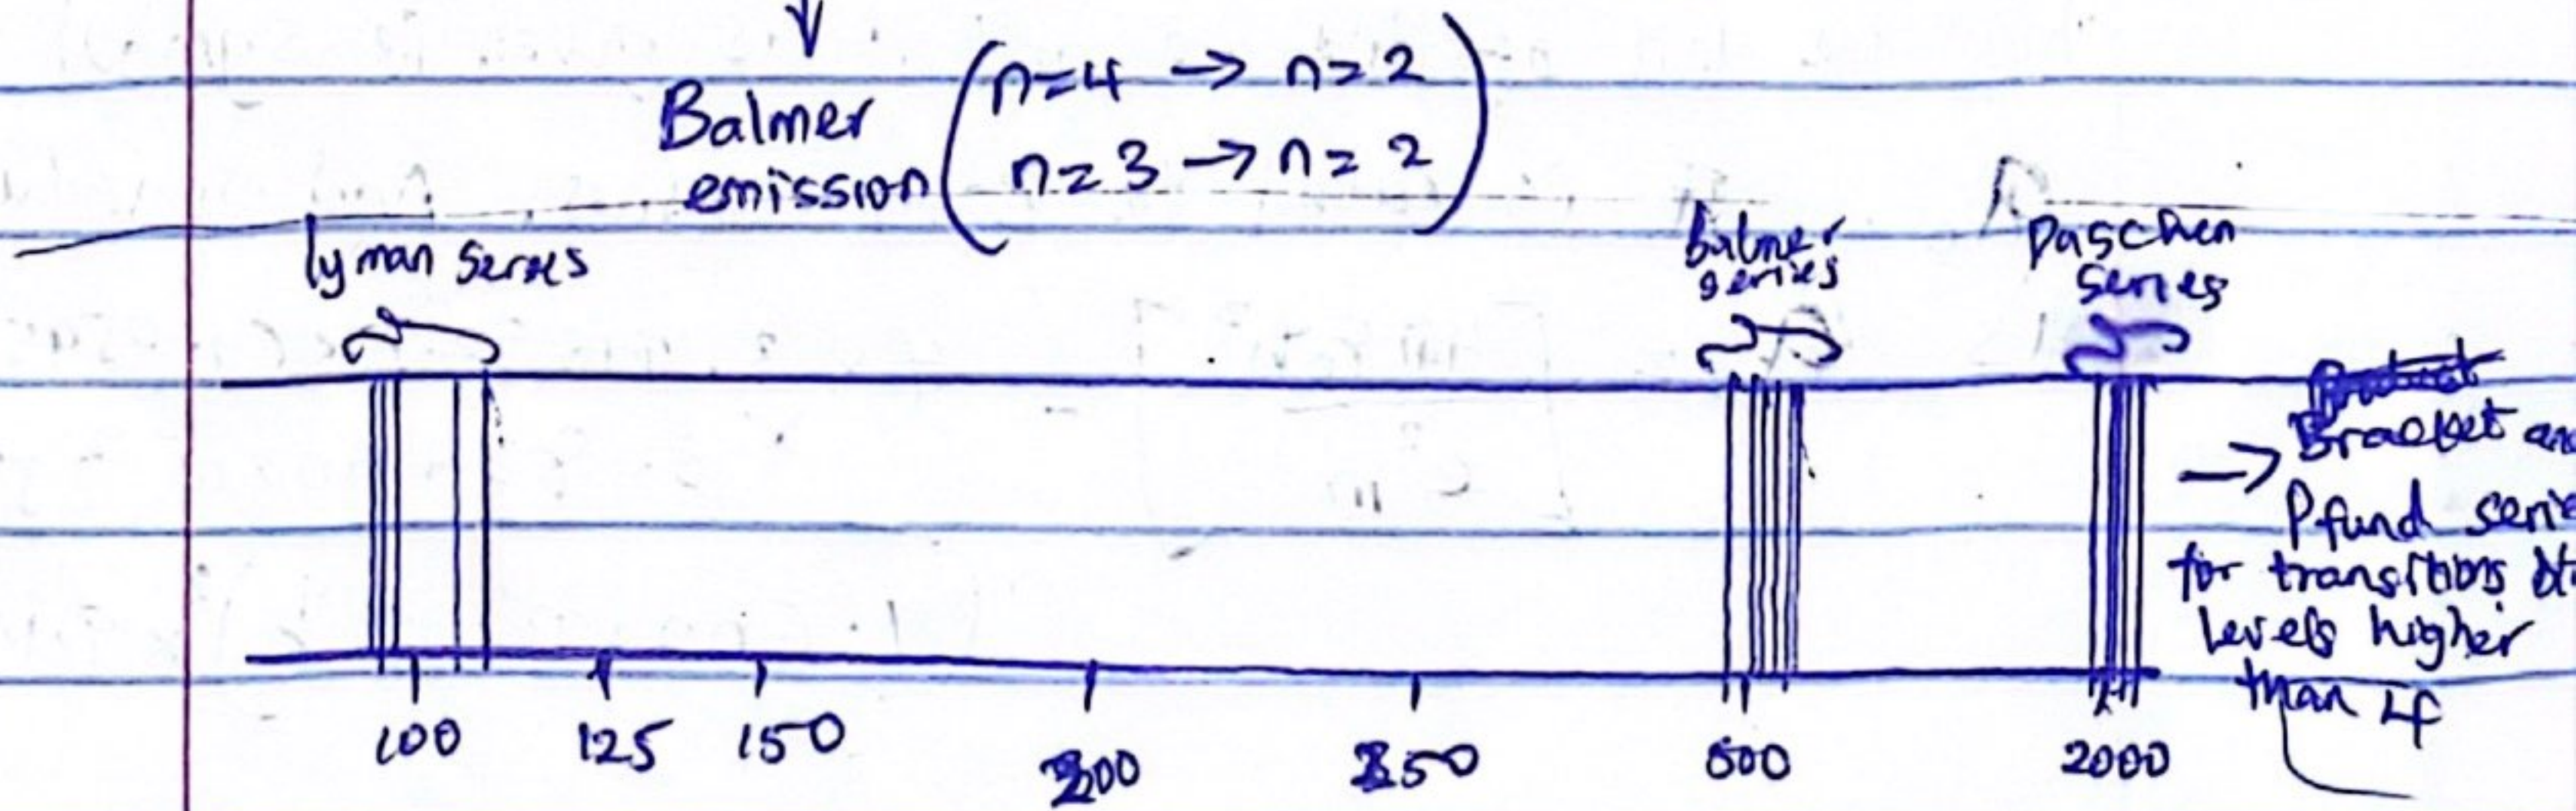 Balmer emission
n=4 → n=2
n=3 → n=2
lyman series
balmer series
Paschen series
→ Bracket
Pfund
for transitions
levels higher
than 4
100 125 150 200 250 500 2000